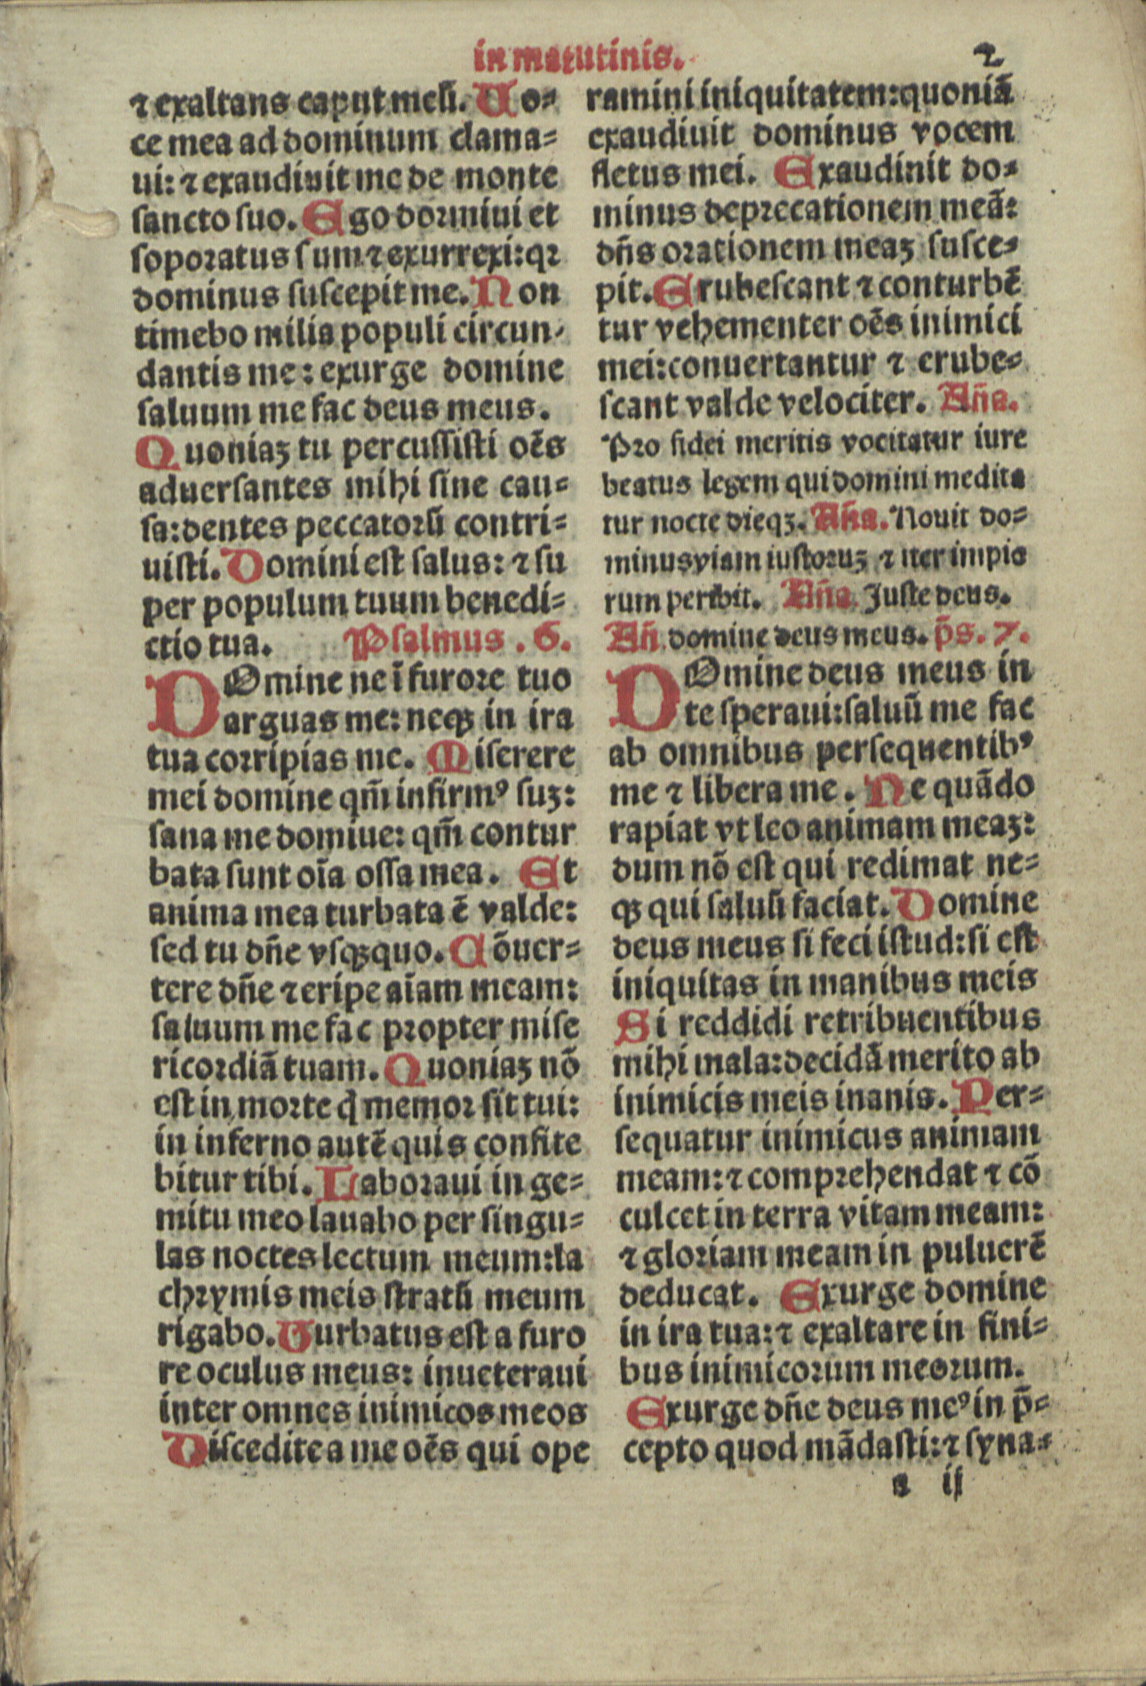 in matutinis. 2
⁊ exaltans caput meũ. Uo-
ce mea ad dominum clama-
ui: ⁊ exaudiuit me de monte
sancto suo. Ego dormiui et
soporatus sum ⁊ exurrexi: qꝛ
dominus suscepit me. Non
timebo milia populi circun-
dantis me: exurge domine
saluum me fac deus meus.
Quoniaꝫ tu percussisti oẽs
aduersantes mihi sine cau-
sa: dentes peccatorũ contri-
uisti. Domini est salus: ⁊ su
per populum tuum benedi-
ctio tua. Psalmus .6.
DOmine ne ĩ furore tuo
arguas me: neqꝫ in ira
tua corripias me. Miserere
mei domine qm̃ infirmꝰ suꝫ:
sana me domiue: qm̃ contur
bata sunt oĩa ossa mea. Et
anima mea turbata ẽ valde:
sed tu dñe vsqꝫquo. Cõuer-
tere dñe ⁊ eripe aĩam meam:
saluum me fac propter mise
ricordiã tuam. Quoniaꝫ nõ
est in morte q̃ memor sit tui:
in inferno autẽ quis confite
bitur tibi. Laboraui in ge-
mitu meo lauabo per singu-
las noctes lectum meum: la
chrymis meis stratũ meum
rigabo. Turbatus est a furo
re oculus meus: inueteraui
inter omnes inimicos meos
Discedite a me oẽs qui ope
ramini iniquitatem: quoniã
exaudiuit dominus vocem
fletus mei. Exaudiuit do-
minus deprecationem meã:
dñs orationem meaꝫ susce-
pit. Erubescant ⁊ conturbẽ
tur vehementer oẽs inimici
mei: conuertantur ⁊ erube-
scant valde velociter. Aña.
Pro fidei meritis vocitatur iure
beatus legem qui domini medita
tur nocte dieqꝫ. Aña. Nouit do-
minus viam iustoruꝫ ⁊ iter impio
rum peribit. Aña Juste deus.
Añ domine deus meus. p̃s. 7.
DOmine deus meus in
te speraui: saluũ me fac
ab omnibus persequentibꝰ
me ⁊ libera me. Ne quãdo
rapiat vt leo animam meaꝫ:
dum nõ est qui redimat ne-
qꝫ qui saluũ faciat. Domine
deus meus si feci istud: si est
iniquitas in manibus meis
Si reddidi retribuentibus
mihi mala: decidã merito ab
inimicis meis inanis. Per-
sequatur inimicus animam
meam: ⁊ comprehendat ⁊ cõ
culcet in terra vitam meam:
⁊ gloriam meam in puluerẽ
deducat. Exurge domine
in ira tua: ⁊ exaltare in fini-
bus inimicorum meorum.
Exurge dñe deus meꝰ in p̃-
cepto quod mãdasti: ⁊ syna-
a ij